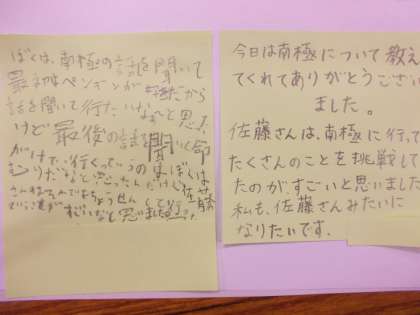 ぼくは、南極の話を聞いて
最初はペンギンが好きだから
話を聞いて行たいなと思
けど最後の話を聞いと命
がけで行くっていうの
むりだなと思ったんだけど佐藤
さん
今日は南極について教え
てくれてありがとうござい
ました。
佐藤さんは、南極に行って
たくさんのことを挑戦して
たのがすごいと思いました
私も、佐藤さんみたいに
なりたいです。